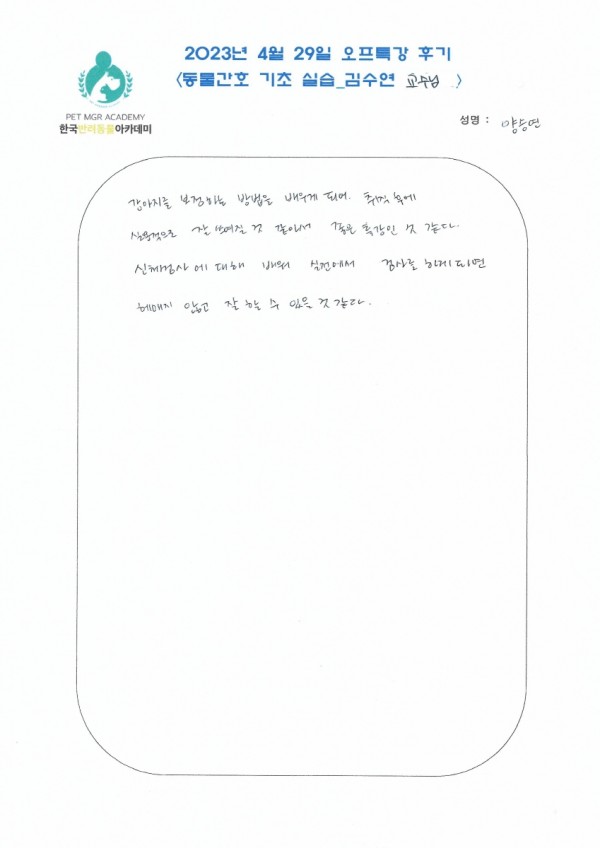 2023년 4월 29일 오프특강 후기
<동물간호 기초 실습_김수연 교수님 >
PET MGR ACADEMY
한국반려동물아카데미
성명 : 양승연
강아지를 보정하는 방법을 배우게 되어. 취직 후에
실용적으로 잘 쓰여질 것 같아서 좋은 특강인 것 같다.
신체검사에 대해 배워 실전에서 검사를 하게 되면
헤매지 않고 잘 할 수 있을 것 같다.